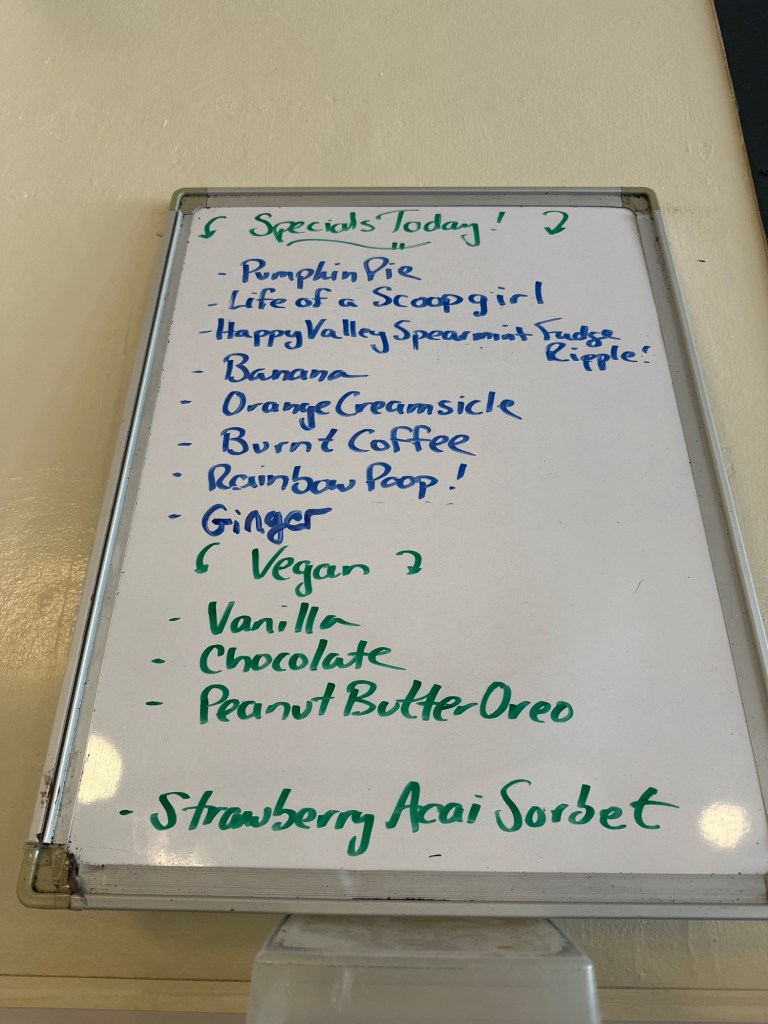 Specials Today!
- Pumpkin Pie
- Life of a Scoopgirl
- Happy Valley Spearmint Fudge
Ripple!
- Banana
- Orange Creamsicle
- Burnt Coffee
- Rainbow Poop!
- Ginger
Vegan
- Vanilla
- Chocolate
- Peanut Butter Oreo
- Strawberry Acai Sorbet